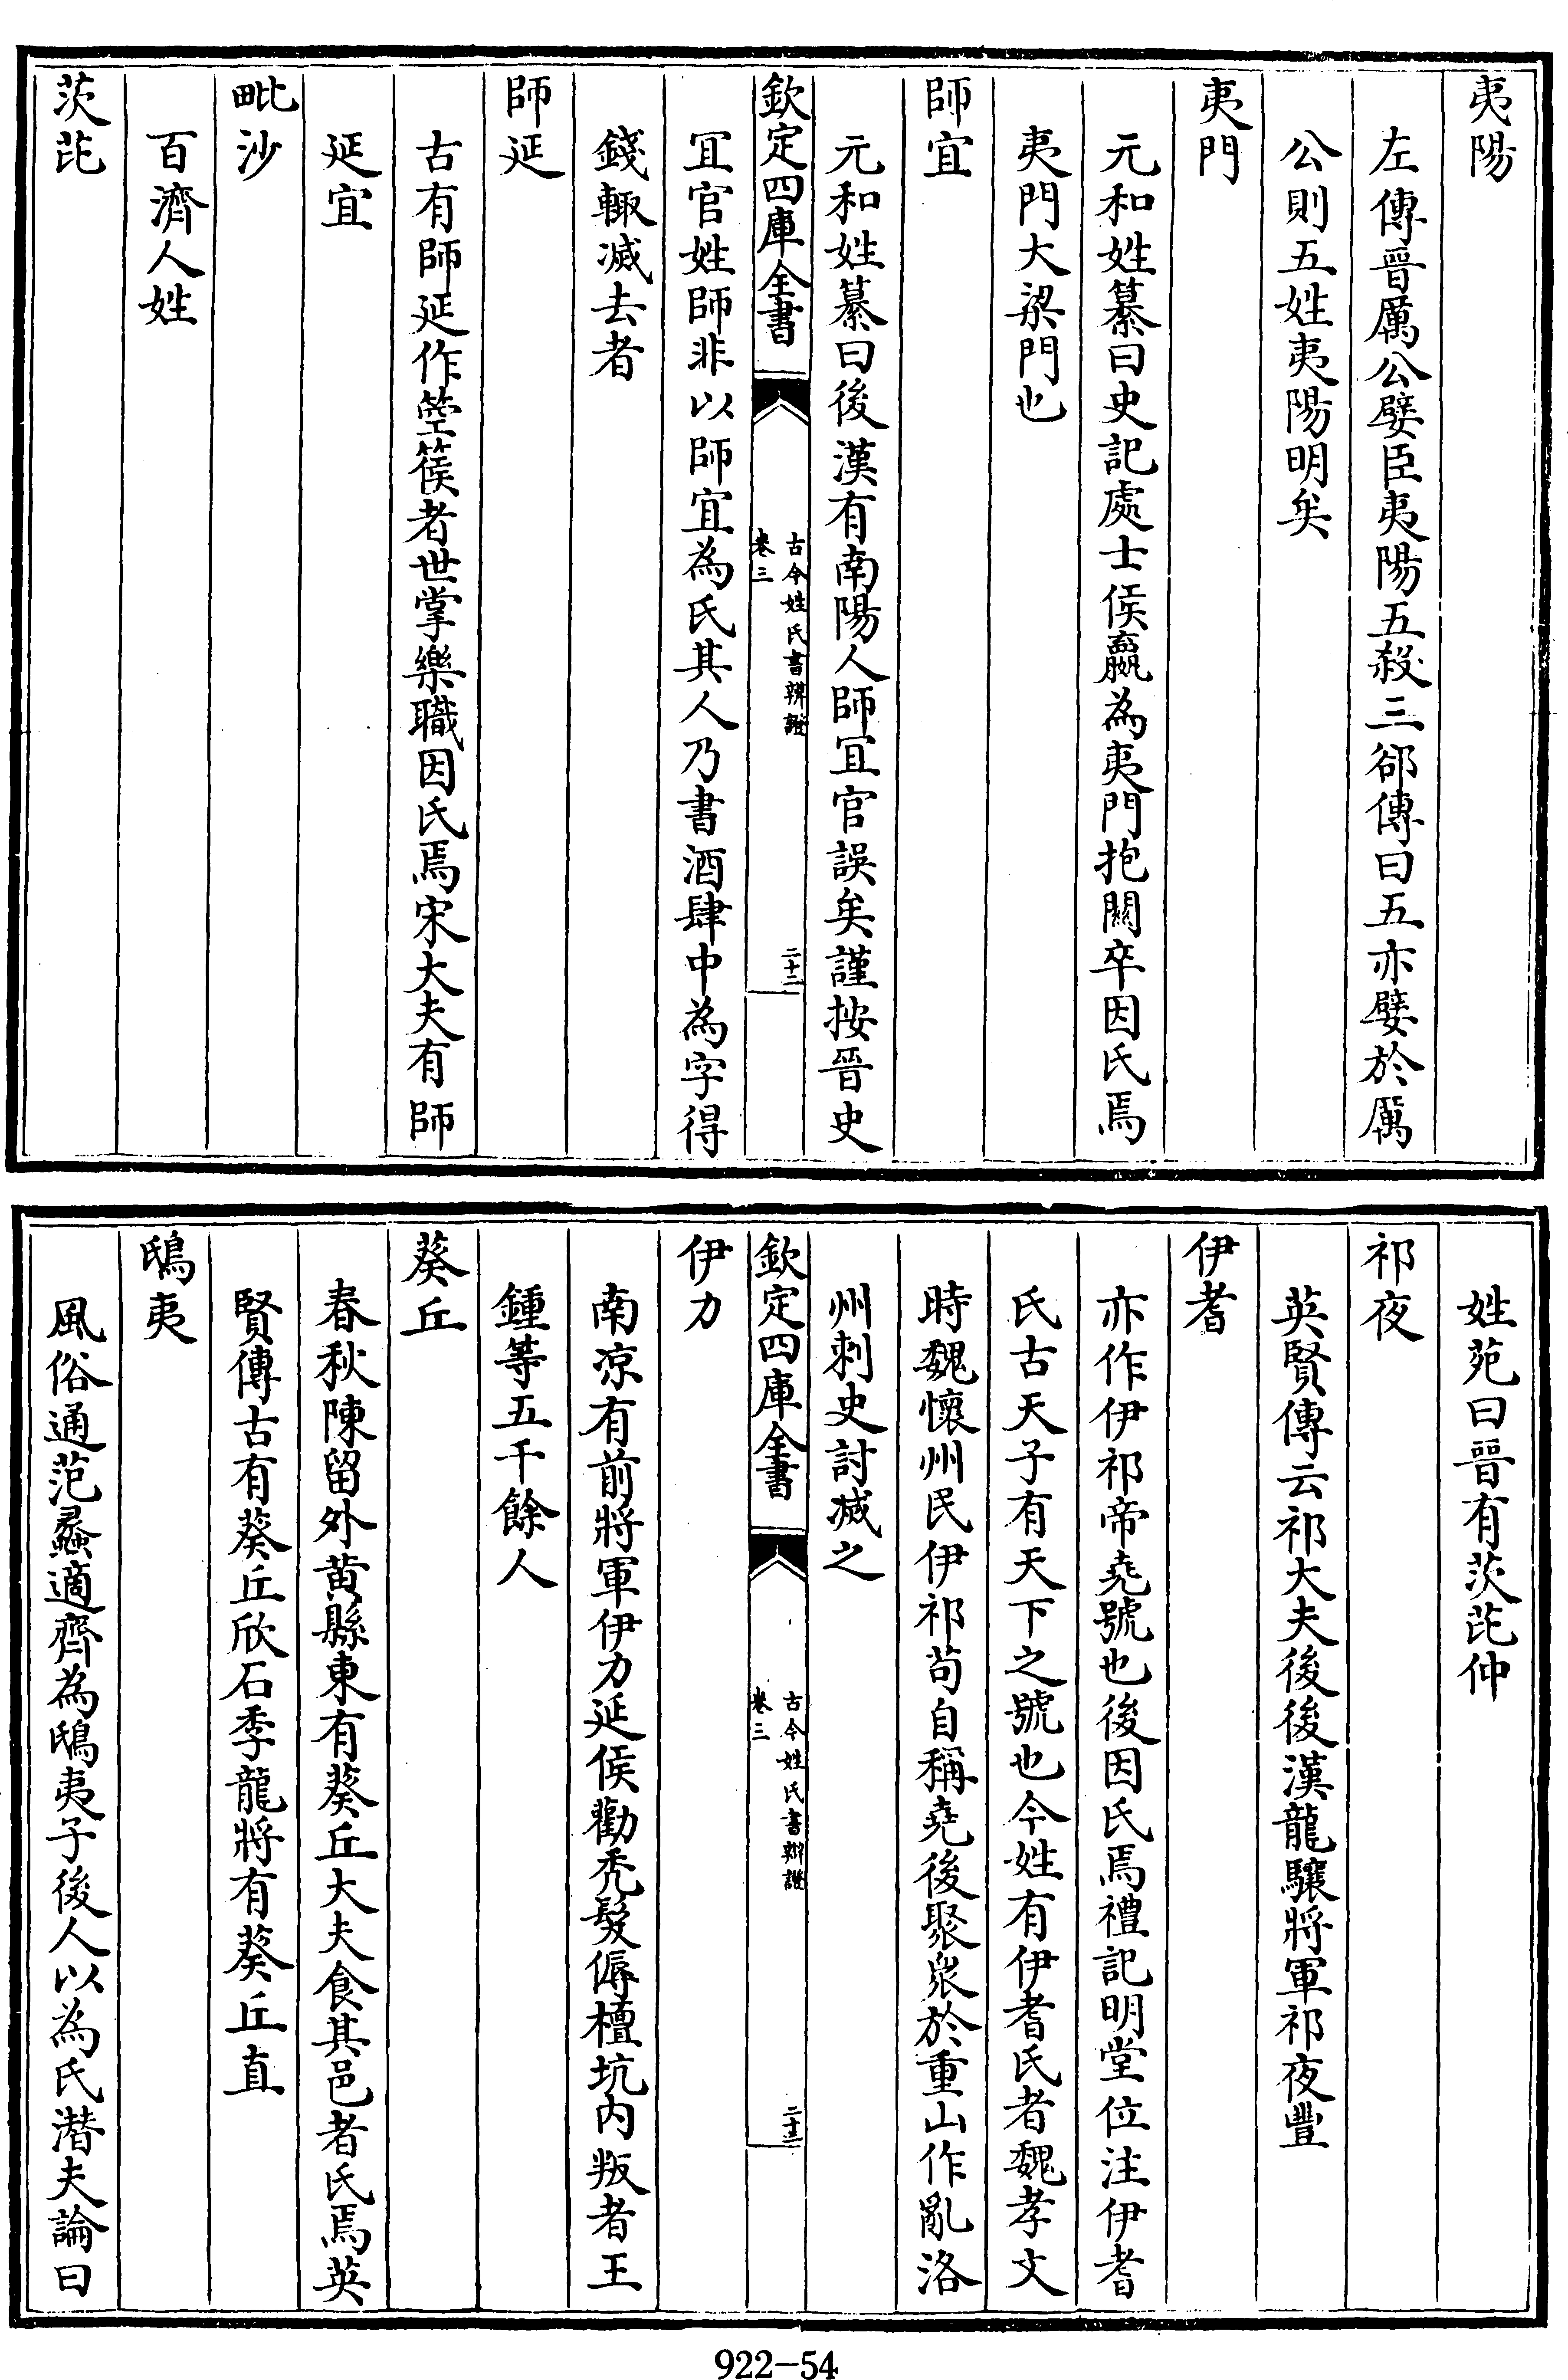 夷陽
左傳晉厲公嬖臣夷陽五殺三郤傳曰五亦嬖於厲
公則五姓夷陽明矣
夷門
元和姓纂曰史記處士侯嬴為夷門抱關卒因氏焉
夷門大梁門也
師宜
元和姓纂曰後漢有南陽人師冝官誤矣謹按晉史
欽定四庫全書
古今姓氏書辨證
卷三
二十二
冝官姓師非以師宜為氏其人乃書酒肆中為字得
錢輙减去者
師延
古有師延作箜篌者世掌樂職因氏焉宋大夫有師
延宜
毗沙
百濟人姓
茨芘
姓苑曰晉有茨芘仲
祁夜
英賢傳云祁大夫後後漢龍驤將軍祁夜豐
伊耆
亦作伊祁帝堯號也後因氏焉禮記明堂位注伊耆
氏古天子有天下之號也今姓有伊耆氏者魏孝文
時魏懷州民伊祁苟自稱堯後聚衆於重山作亂洛
州刺史討滅之
欽定四庫全書
古今姓氏書辨證
卷三
二十三
伊力
南凉有前將軍伊力延侯勸禿髮傉檀坑内叛者王
鍾等五千餘人
葵丘
春秋陳留外黄縣東有葵丘大夫食其邑者氏焉英
賢傳古有葵丘欣石季龍將有葵丘直
鴟夷
風俗通范蠡適齊為鴟夷子後人以為氏潛夫論曰
922-54